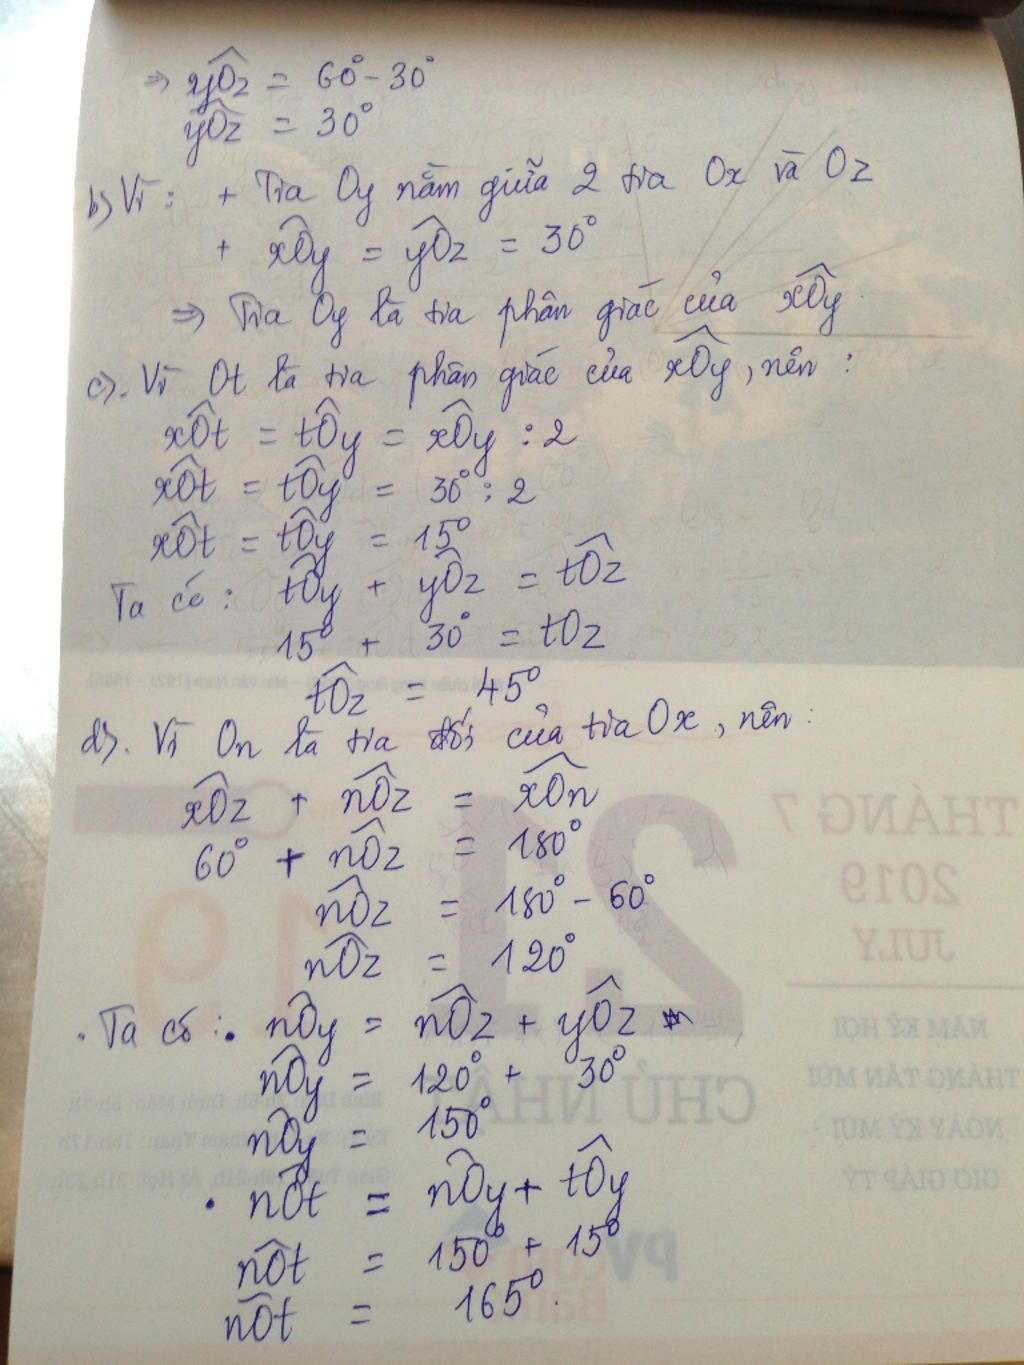 ⇒ yÔz = 60° - 30°
yÔz = 30°
b) Vì: + Tia Oy nằm giữa 2 tia Ox và Oz
+ xÔy = yÔz = 30°
⇒ Tia Oy là tia phân giác của xÔy.
c). Vì Ot là tia phân giác của xÔy, nên:
xÔt = tÔy = xÔy : 2
xÔt = tÔy = 30° : 2
xÔt = tÔy = 15°
Ta có: tÔy + yÔz = tÔz
15° + 30° = tOz
tÔz = 45°
d). Vì On là tia đối của tia Ox, nên:
xÔz + nÔz = xÔn
60° + nÔz = 180°
nÔz = 180° - 60°
nÔz = 120°
. Ta có: • nÔy = nÔz + yÔz
nÔy = 120° + 30°
nÔy = 150°
• nÔt = nÔy + tÔy
nÔt = 150° + 15°
nÔt = 165°.
THÁNG 7
2019
JULY
21
19
NĂM KỶ HỢI
THÁNG TÂN MÙI
NGÀY KỶ MÙI
GIỜ GIÁP TÝ
CHỦ NHẬT
PV
com
Bank